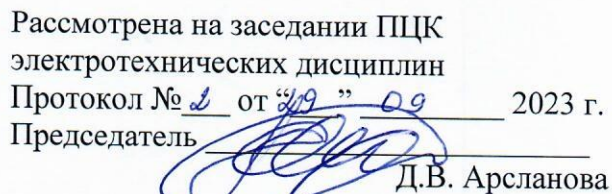 Рассмотрена на заседании ПЦК
электротехнических дисциплин
Протокол № 2 от “29” 09 2023 г.
Председатель
Д.В. Арсланова